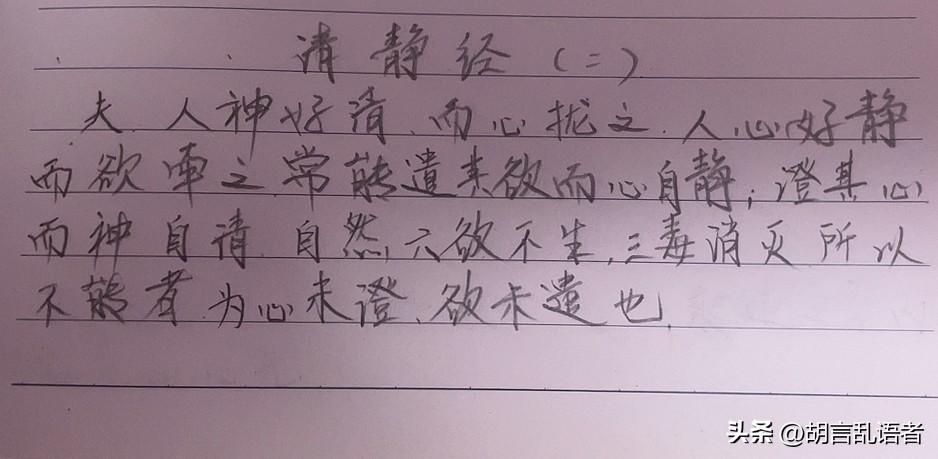 清静经(二)
夫.人神好清.而心扰之.人心好静
而欲牵之.常能遣其欲而心自静;澄其心
而神自清.自然六欲不生.三毒消灭所以
不能者.为心未澄.欲未遣也.
头条 @胡言乱语者